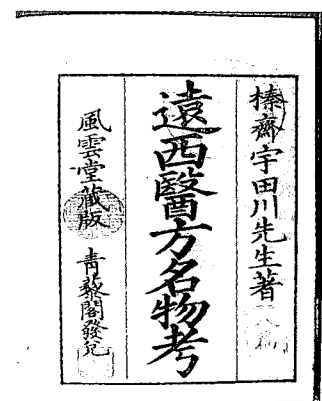 榛齋宇田川先生著
遠西醫方名物考
風雲堂藏版 青藜閣發兌